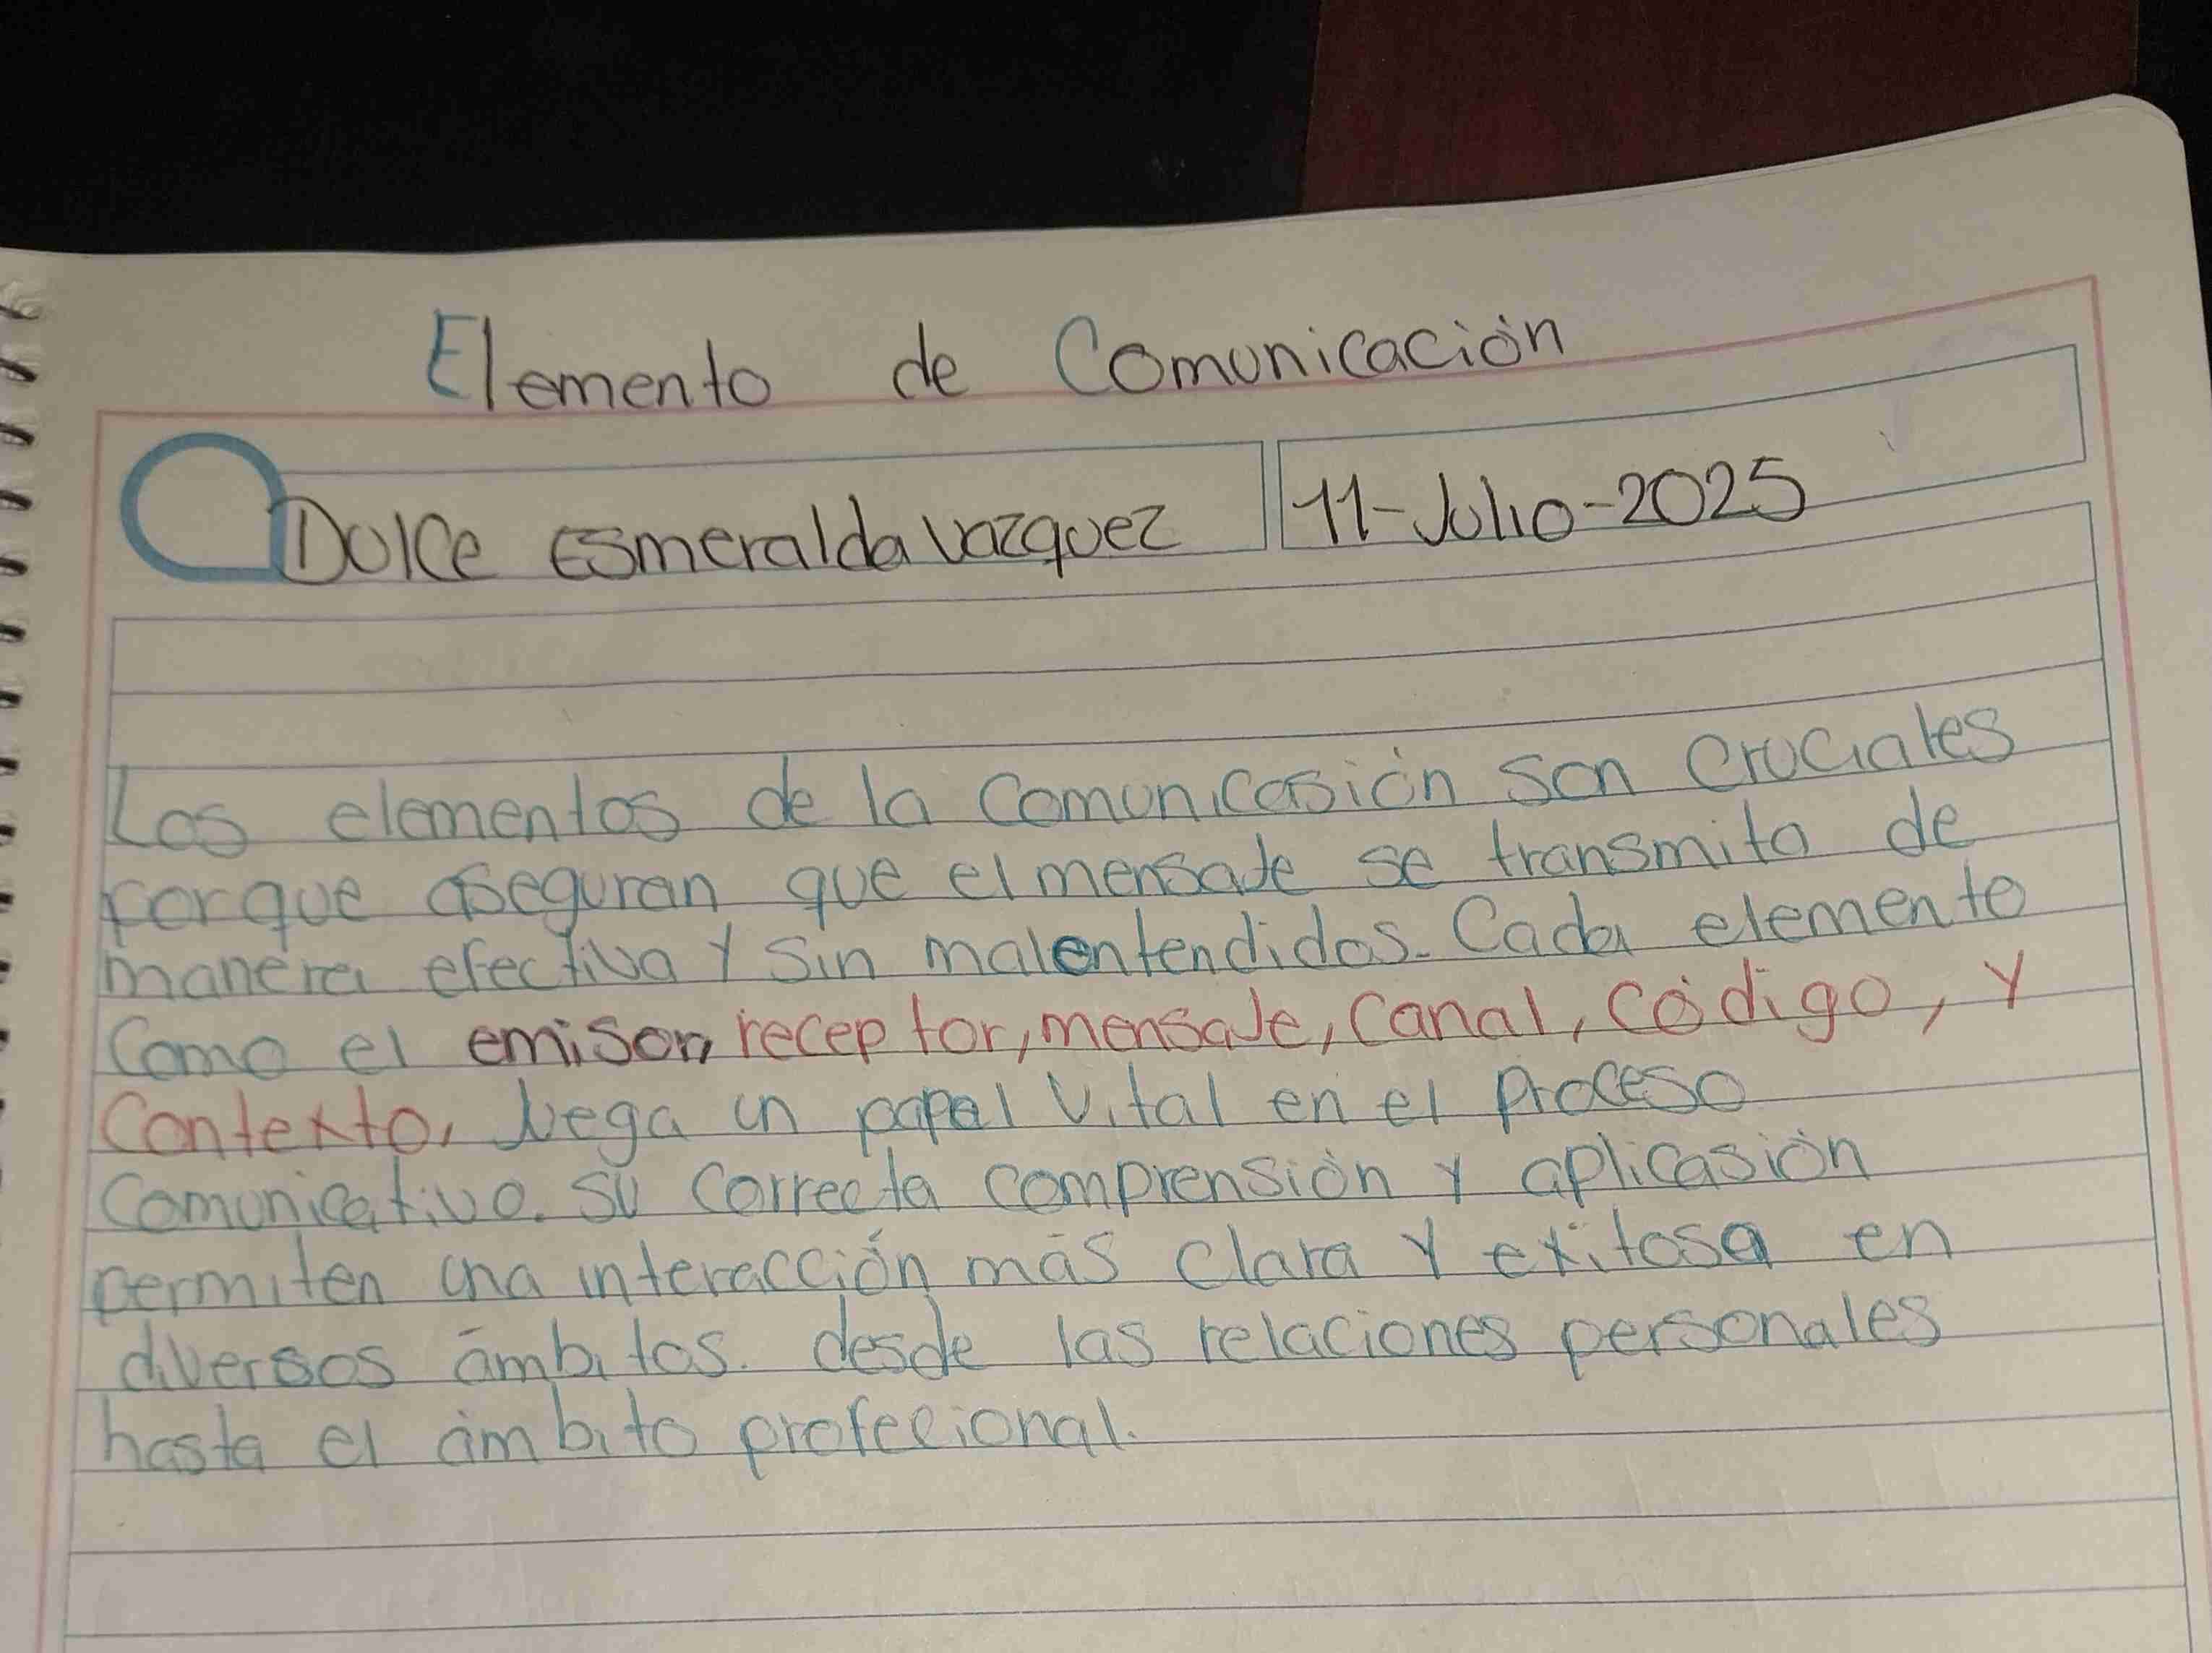 Elemento de Comunicación
Dulce Esmeralda Vazquez
11-Julio-2025
Los elementos de la Comunicasión son cruciales
porque aseguran que el mensaje se transmita de
manera efectiva y sin malentendidos. Cada elemento
Como el emisor, receptor, mensaje, Canal, Código, y
Contexto, Juega un papel vital en el proceso
Comunicativo. su correcta comprensión y aplicasión
permiten una interacción más clara y exitosa en
diversos ámbitos. desde las relaciones personales
hasta el ámbito profecional.